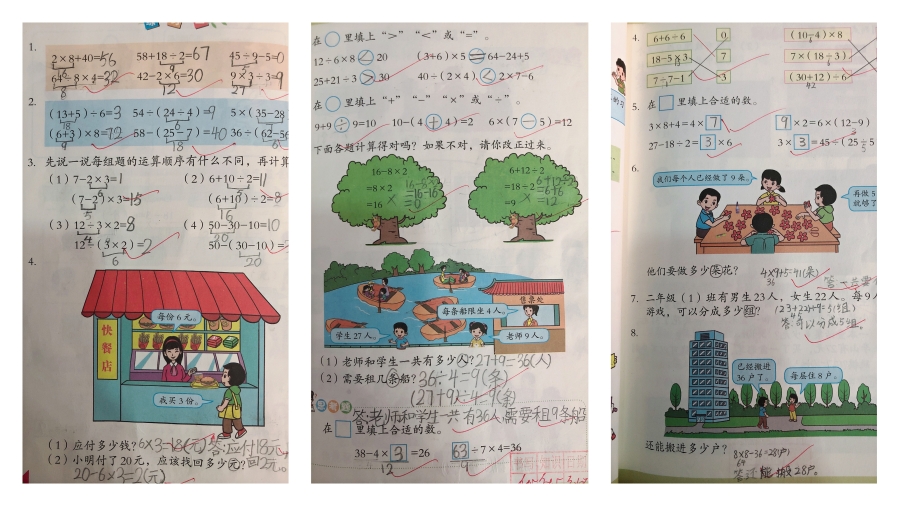 1.
2×8+40=56 58+18÷2=67 45÷9-5=0
64-8×4=32 42-2×6=30 9×3÷3=9
2.
(13+5)÷6=3 54÷(24÷4)=9 5×(35-28
(6+3)×8=72 58-(25-7)=40 36÷(62-56
3. 先说一说每组题的运算顺序有什么不同，再计算
(1) 7-2×3=1 (2) 6+10÷2=11
(7-2)×3=15 (6+10)÷2=8
(3) 12÷3×2=8 (4) 50-30-10=10
12÷(3×2)=2 50-(30-10)=
4.
每份6元。
快餐店
我买3份。
(1) 应付多少钱? 6×3=18(元) 答:应付18元
(2) 小明付了20元，应该找回多少元?
20-6×3=2(元)
在○里填上“>”“<”或“=”。
12÷6×8<20 (3+6)×5=64-24+5
25+21÷3>30 40÷(2×4)<2×7-6
在○里填上“+”“-”“×”或“÷”。
9+9÷9=10 10-(4+4)=2 6×(7-5)=12
下面各题计算得对吗? 如果不对，请你改正过来。
16-8×2 6+12÷2
=8×2 =18÷2
=16 =9
16-8×2
=16-16
=0
6+12÷2
=6+6
=12
售票处
每条船限坐4人。
学生27人。
老师9人。
(1) 老师和学生一共有多少人? 27+9=36(人)
(2) 需要租几条船? 36÷4=9(条)
(27+9)÷4=9(条)
答:老师和学生一共有36人,需要租9条船
在□里填上合适的数。
38-4×3=26 63÷7×4=36
4.
6+6÷6 0 (10-4)×8
18-5×3 7 7×(18÷3)
7÷7-1 3 (30+12)÷6
5. 在□里填上合适的数。
3×8+4=4×7 9×2=6×(12-9)
27-18÷2=3×6 3×3=45÷(25÷5
6.
我们每个人已经做了9朵。
再做5
就够了
他们要做多少朵花? 4×9+5=41(朵)
7. 二年级(1)班有男生23人，女生22人。每9人
游戏，可以分成多少组? (23+22)÷9=5(组)
答:可以分成5组。
8.
已经搬进
36户了。
每层住8户。
还能搬进多少户? 8×8-36=28(户)
答:还能搬28户。